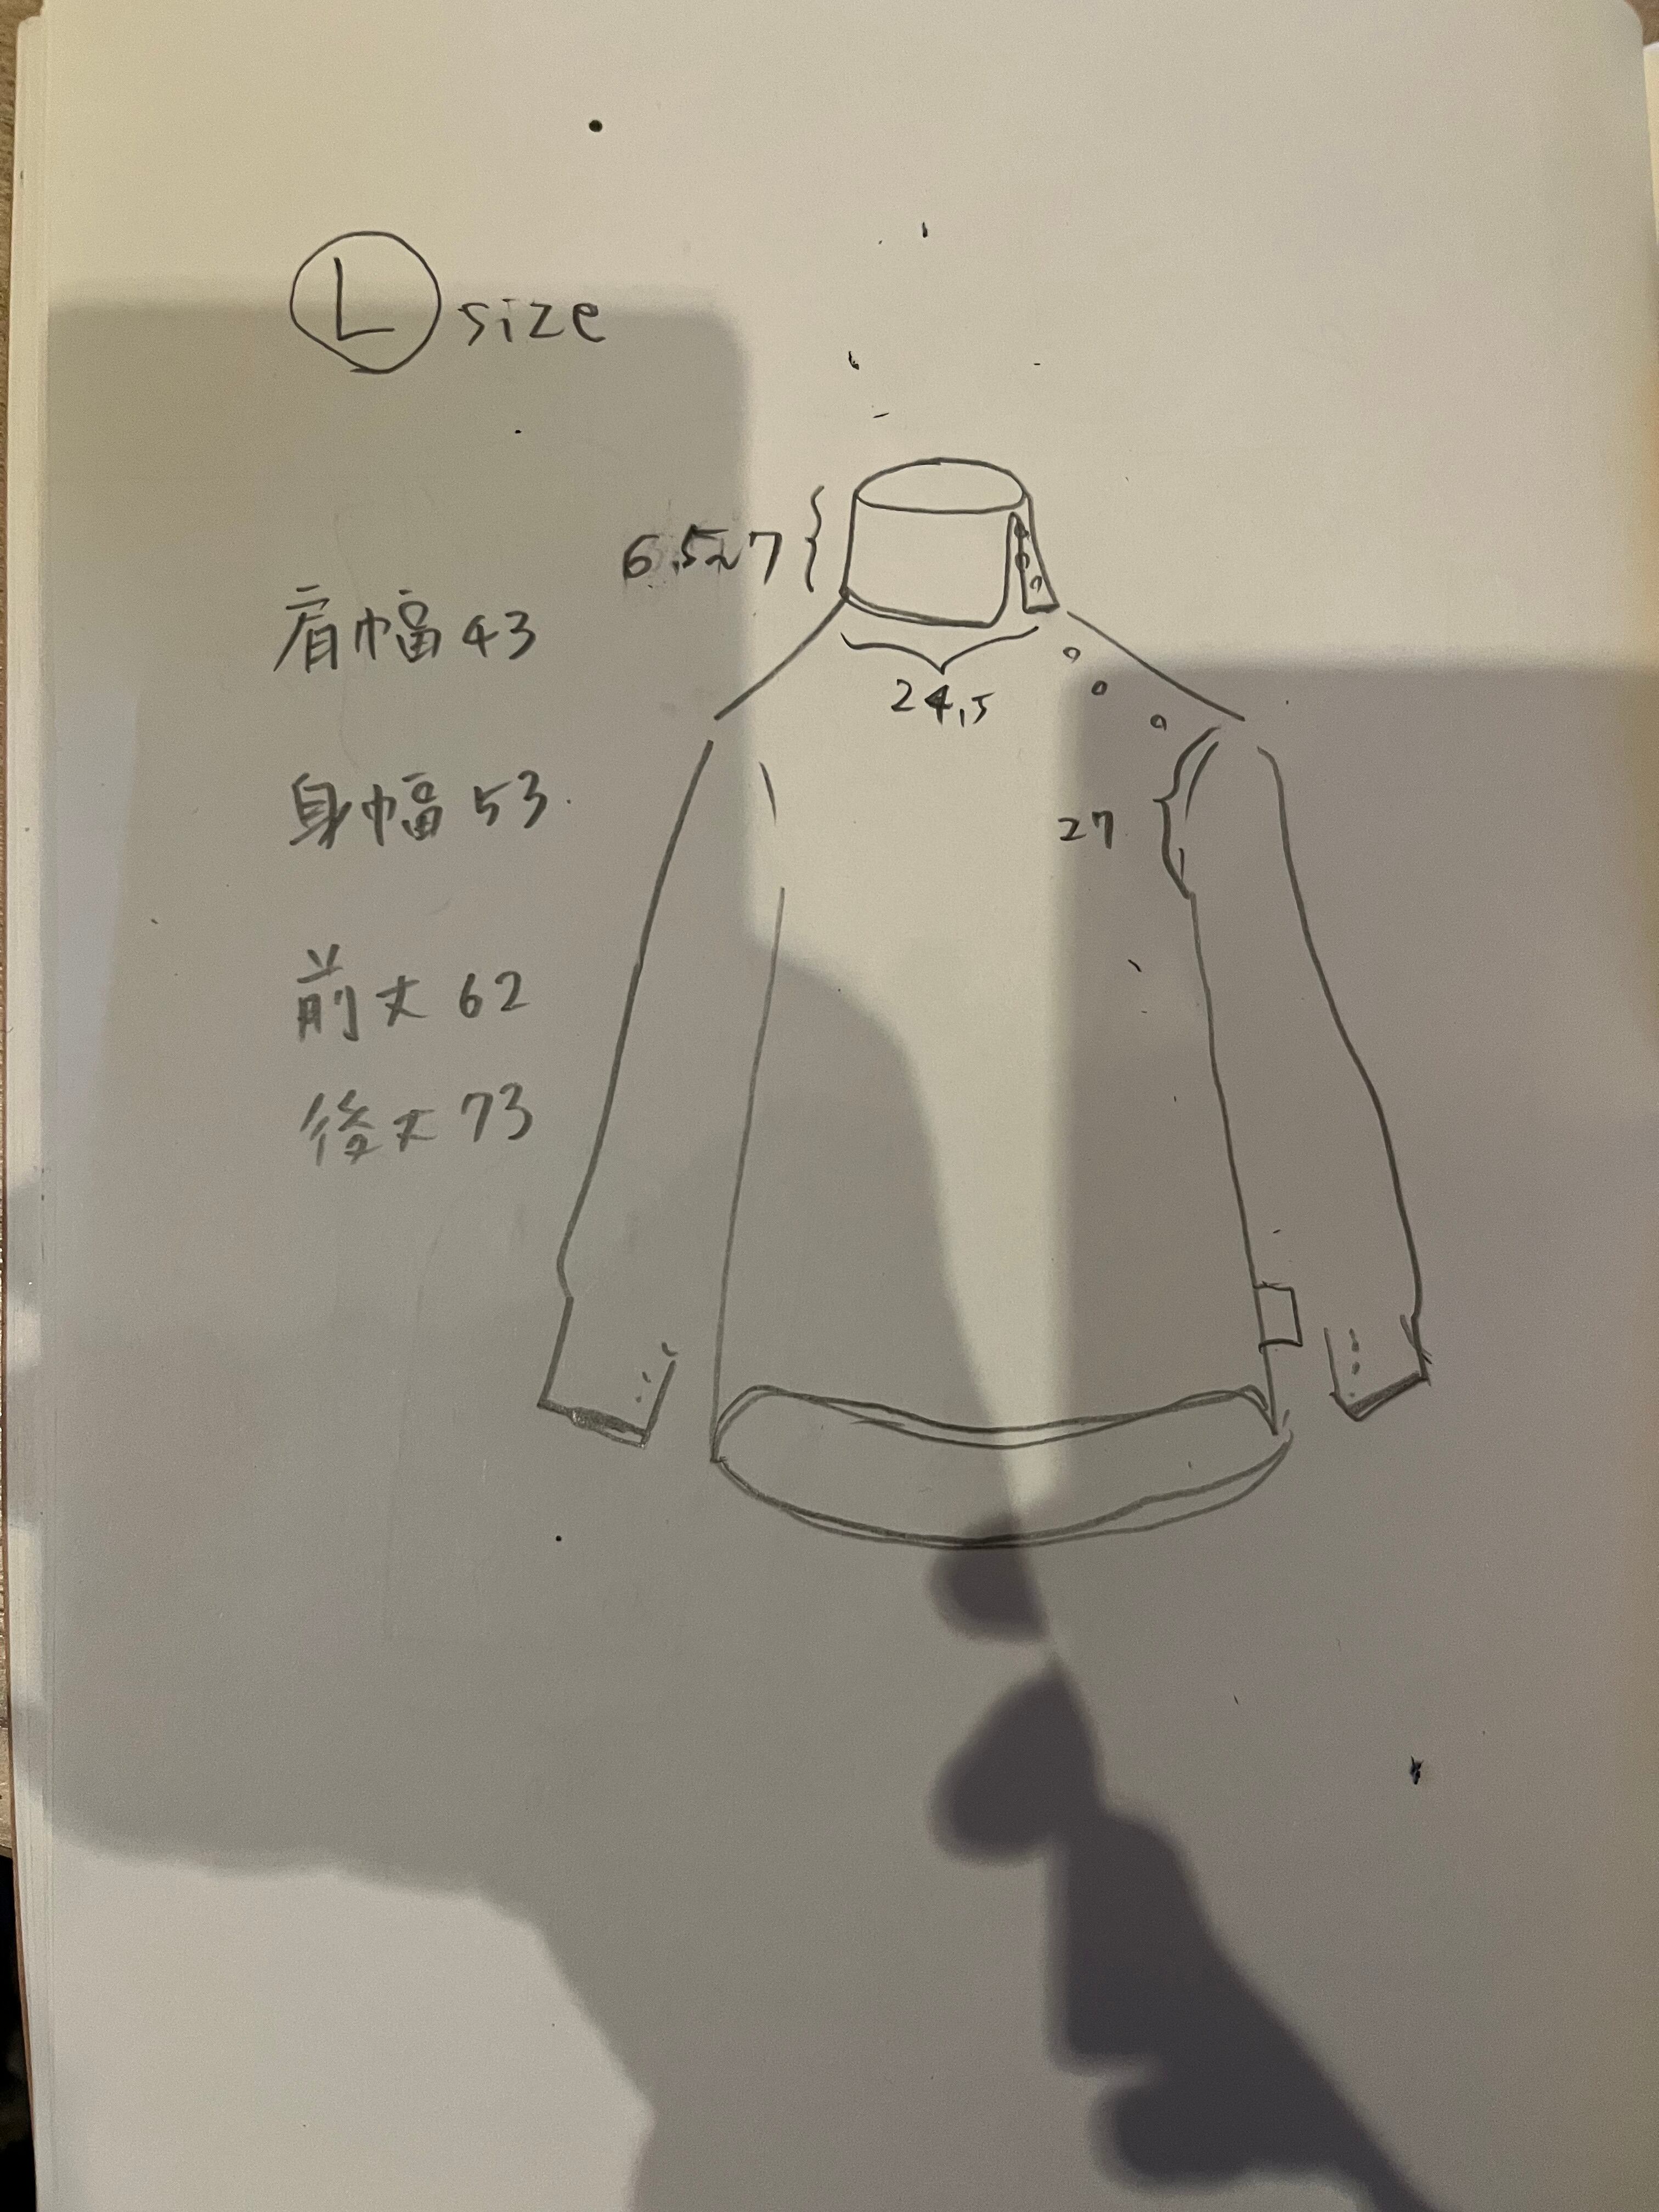 L size
6.5~7
肩幅 43
24.5
身幅 53
27
前丈 62
後丈 73